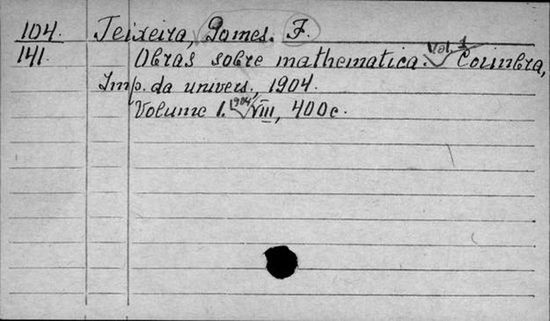 104. Teixeira, Gomes. F.
141 Obras sobre mathematica. Vol. 1 Coimbra,
Imp. da univers., 1904.
Volume I. 1904 VIII, 400 c.